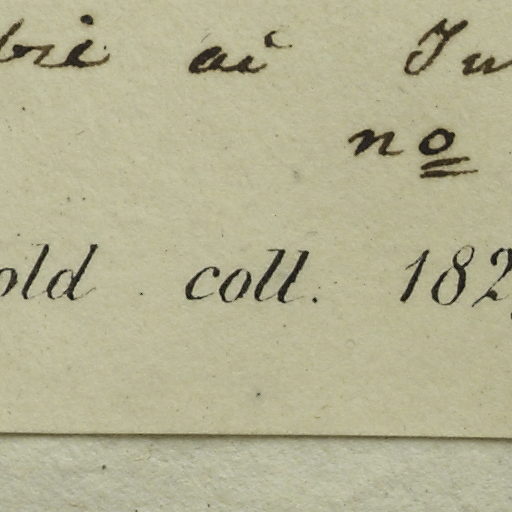 brè ai Ju
no
old coll. 182